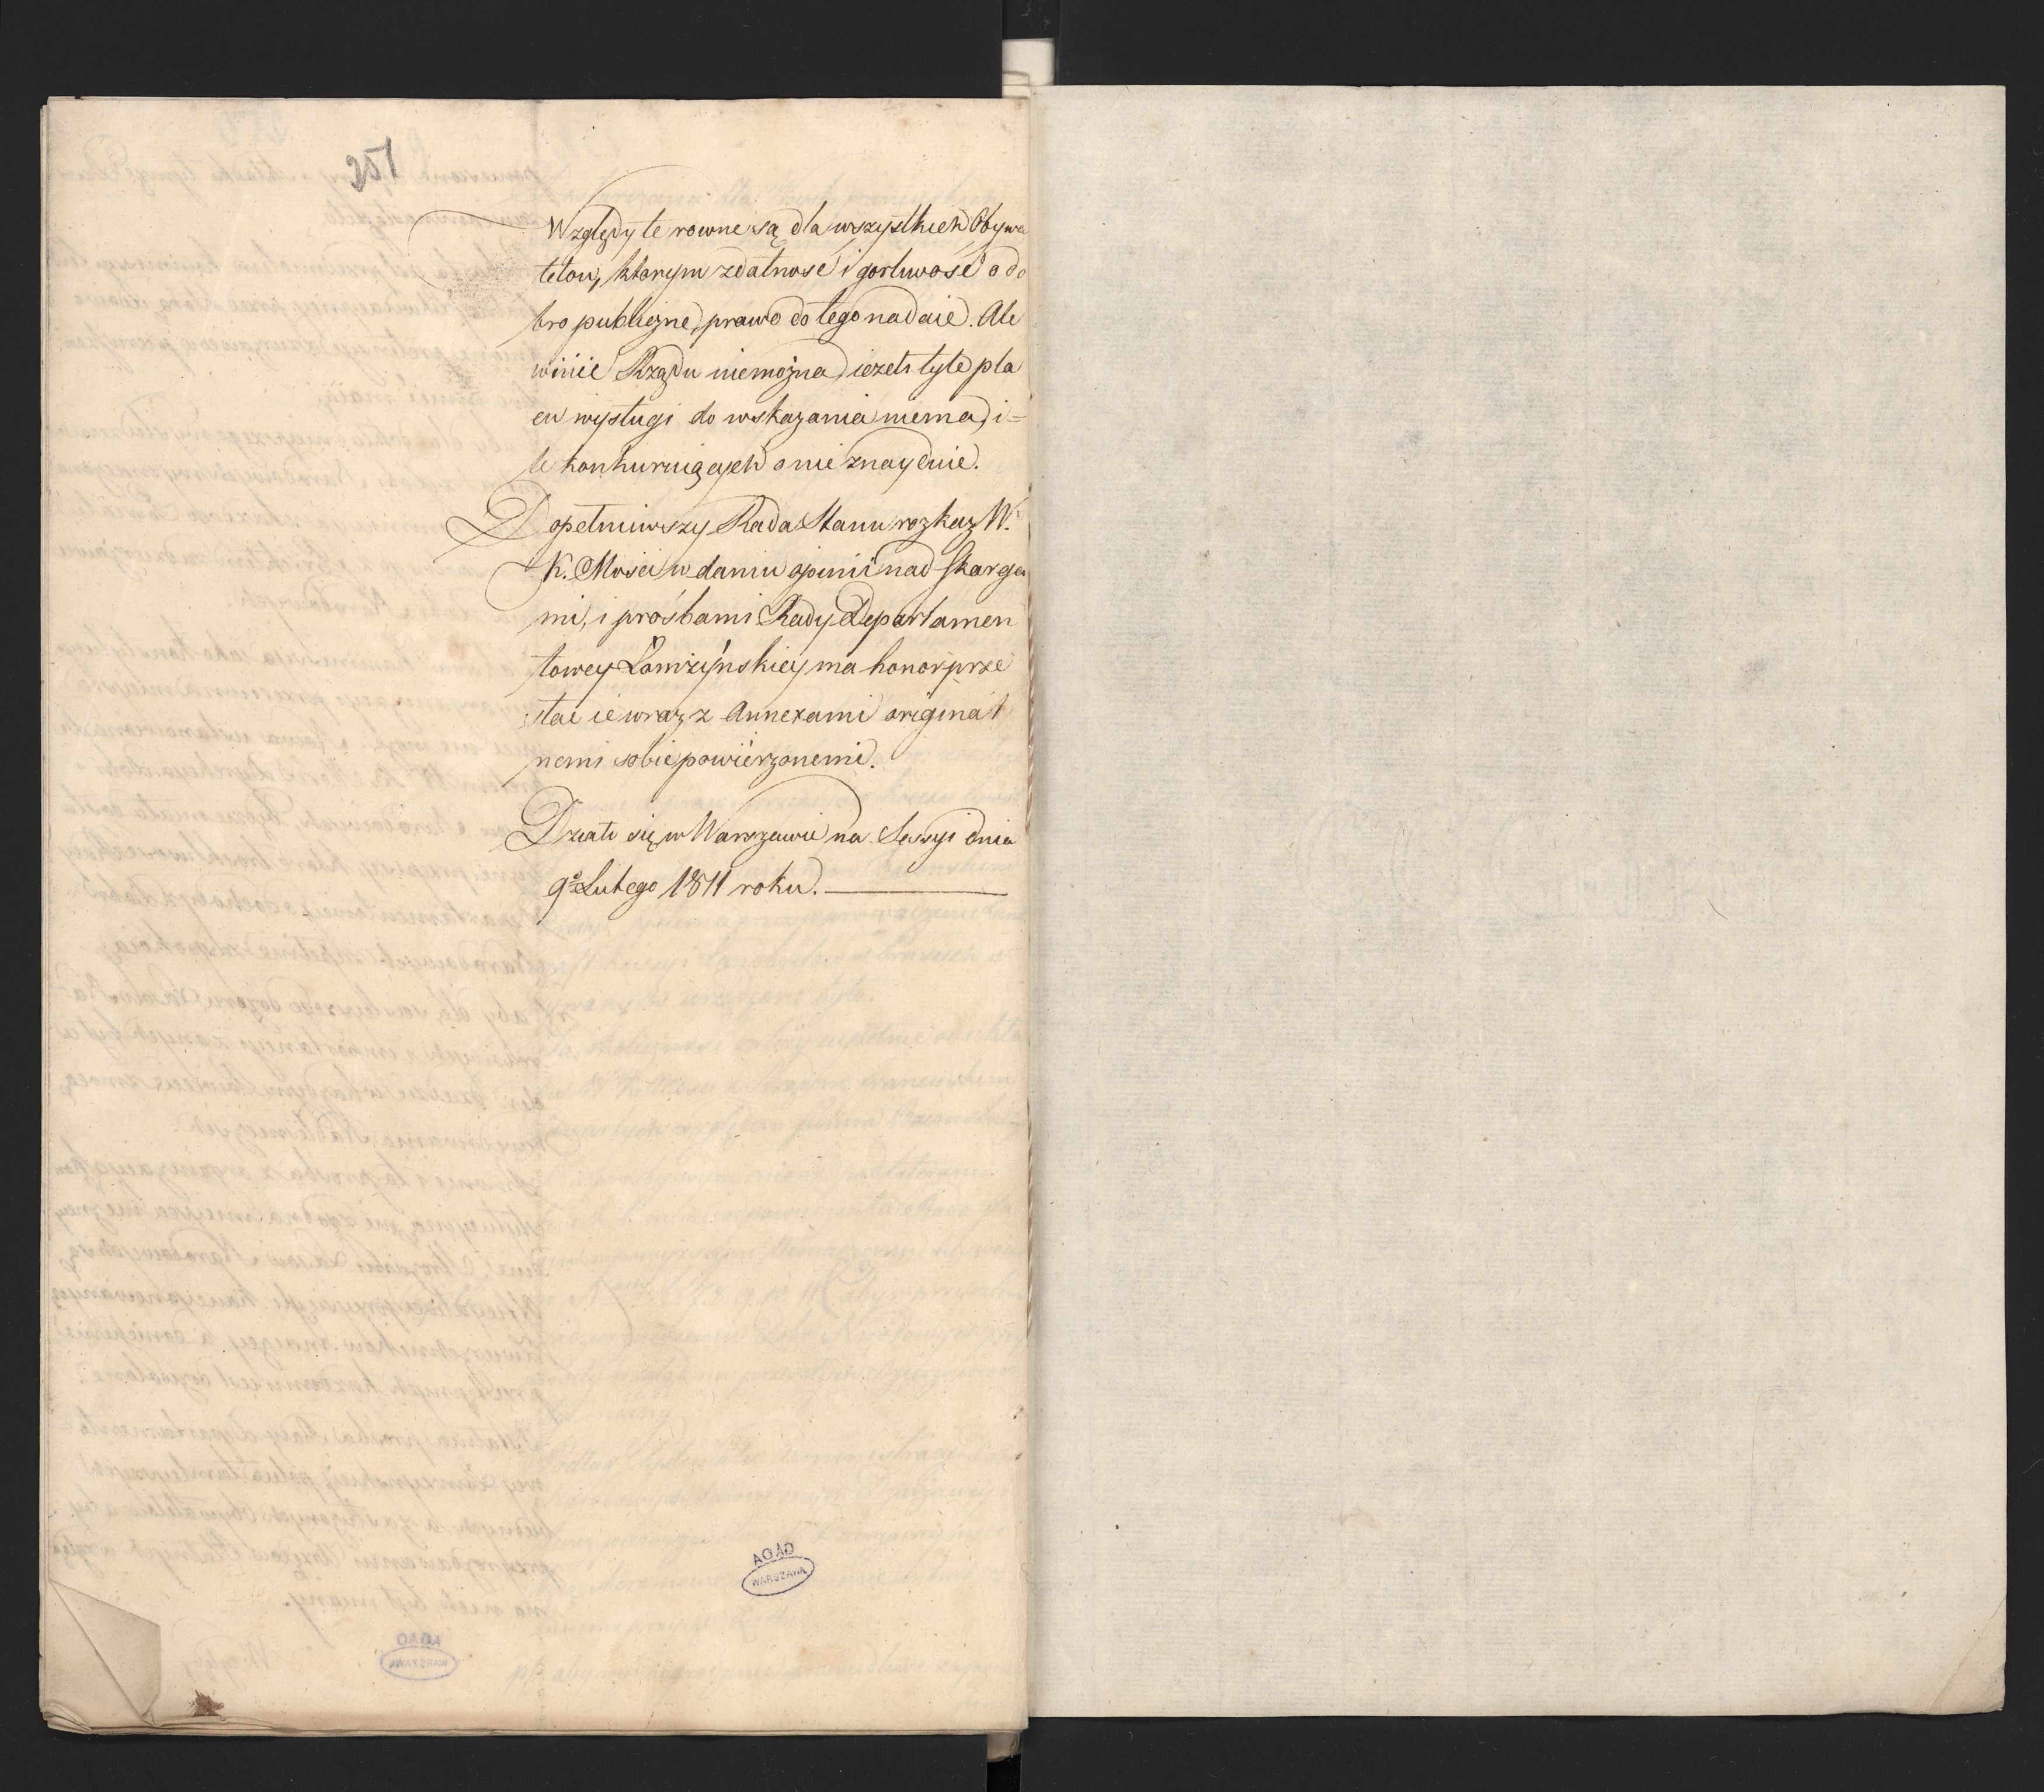 251
Względy te rowne są dla wszystkich Obywa
telow, ktorym zdatność i gorliwość o do
bro publiczne, prawo do tego nadaie. Ale
winić Rządu niemożna, ieżeli tyle pla
cu wysługi do wskazania niema, i=
le konkuruiących o nie znayduie.
Dopełniwszy Rada Stanu rozkaz W.
K. Mości w daniu opinii nad skarga
mi, i prośbami Rady Departamen
towey Łomżyńskiey ma honor prze
słać ie wraz z Annexami originał
nemi sobie powierzonemi.
Działo się w Warszawie na Sessyi dnia
9º Lutego 1811 roku.
AGAD
WARSZAWA